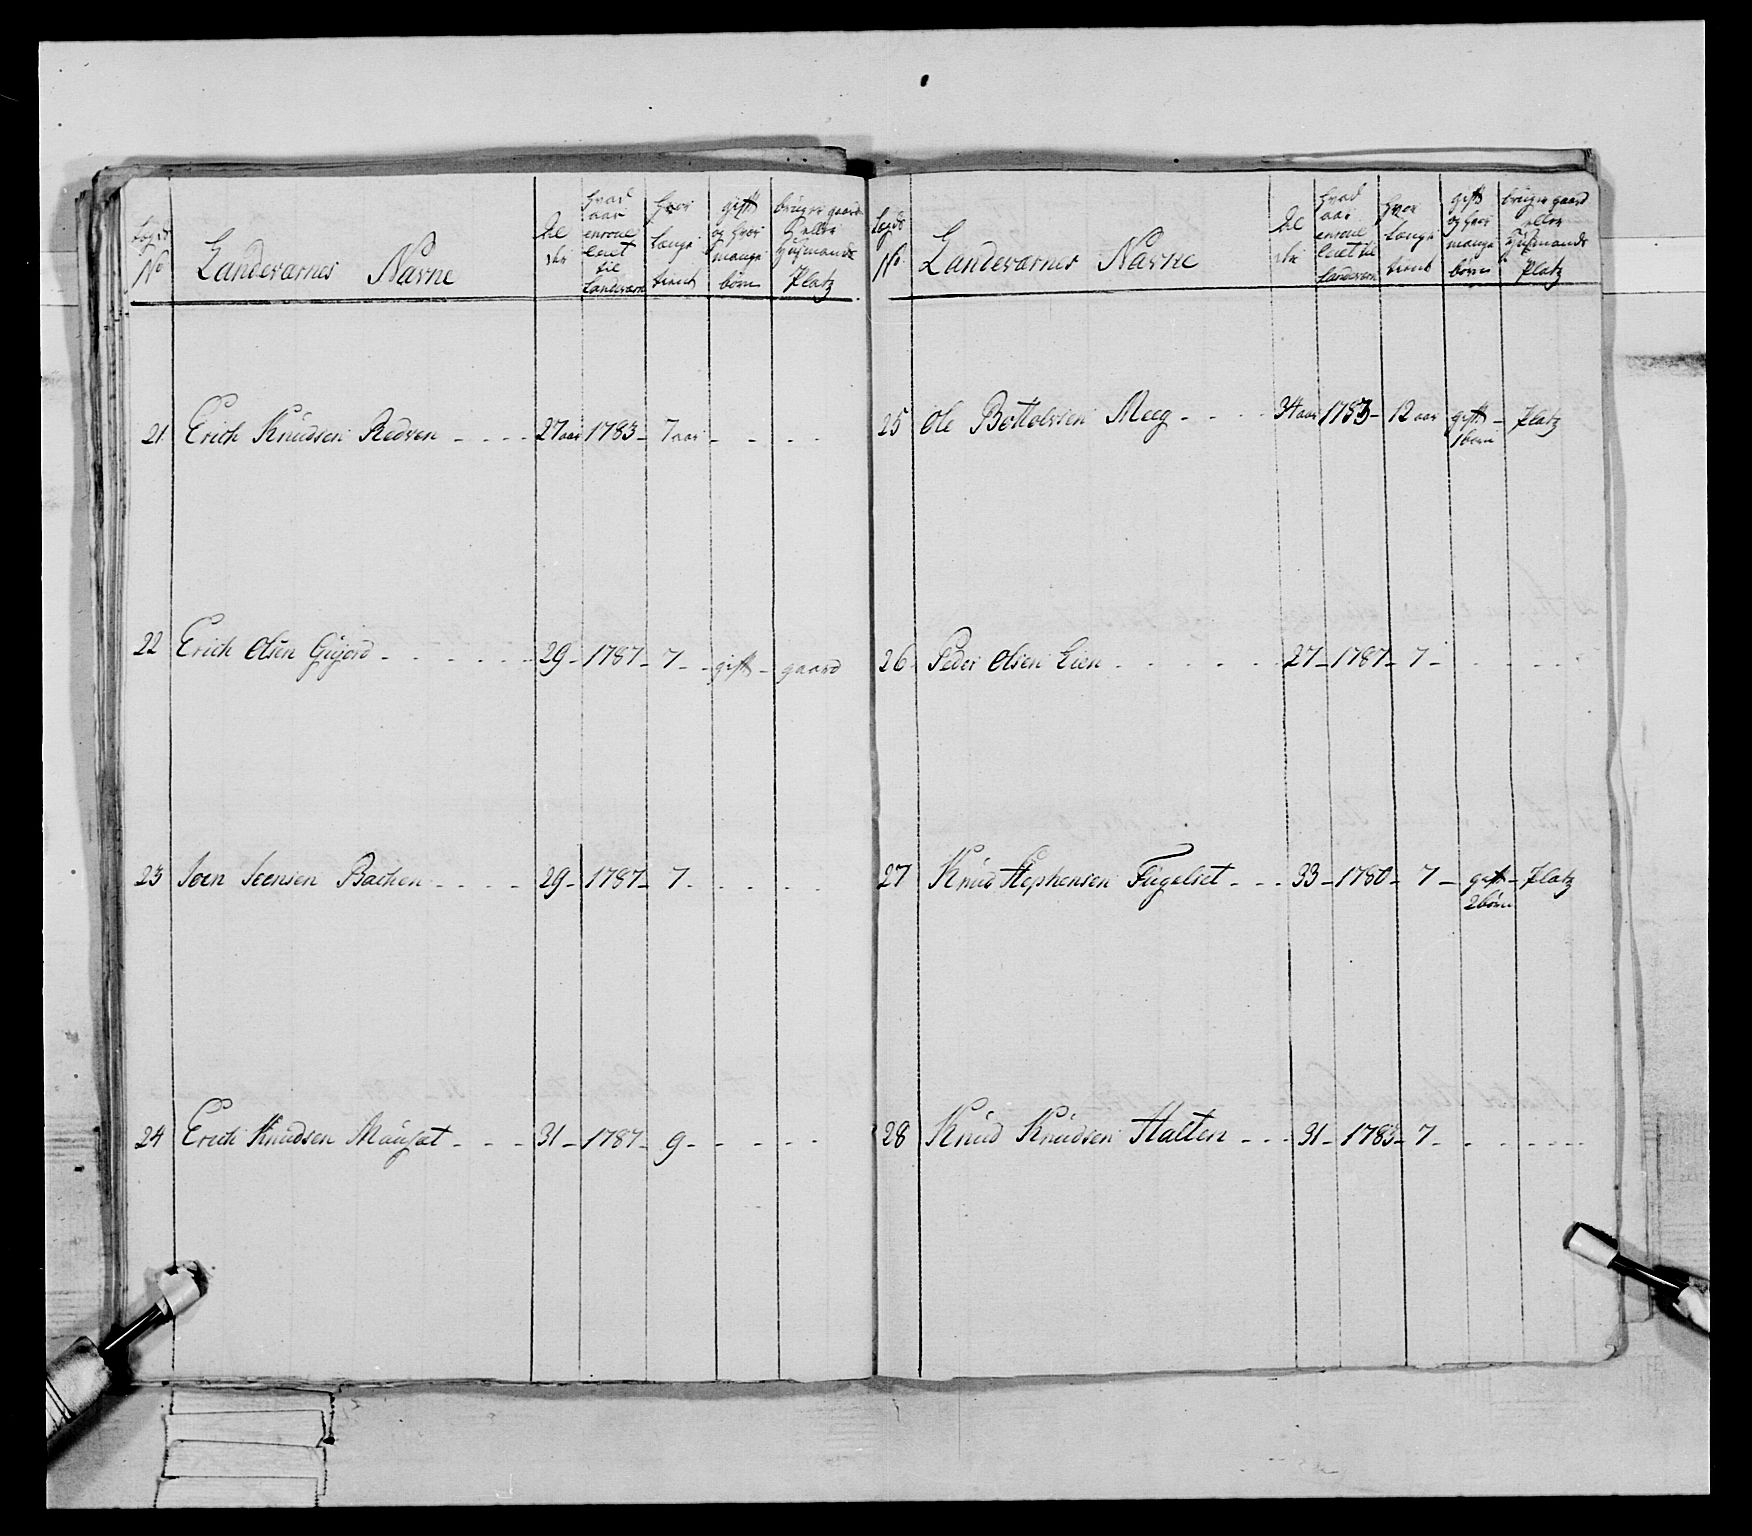 Legds
No
Landeværnes Navne
Al
der
hvad
aar
enroul
leret
til
Landeværn
hvor
længe
tient
gift
og hvor
mange
børn
bruger gaard
eller
Huusmands
Platz
21 Erich Knudsen Redven - - - - 27 aar 1783 - 7 aar - - - -
22 Erich Olsen Gujord - - - - - - 29 - 1787 - 7 - - gift - gaard
23 Joen Joensen Bachen - - - - 29 - 1787 - 7 - - - -
24 Erich Knudsen Mausat - - - 31 - 1787 - 9 - - - - -
Legds
No
Landeværnes Navne
Al
der
hvad
aar
enroul
leret til
Landeværn
hvor
længe
tient
gift
og hvor
mange
børn
bruger gaard
eller
Huusmands
Platz
25 Ole Bottolvsen Meeg - - - - 34 aar 1783 - 12 aar gift - Platz
1 børn
26 Peder Olsen Lien - - - - - 27 - 1787 - 7 - - - - - -
27 Knud Stephensen Fugelset - - - 33 - 1780 - 7 - gift - Platz
2 børn
28 Knud Knudsen Halten - - - 31 - 1783 - 7 - - - - - -